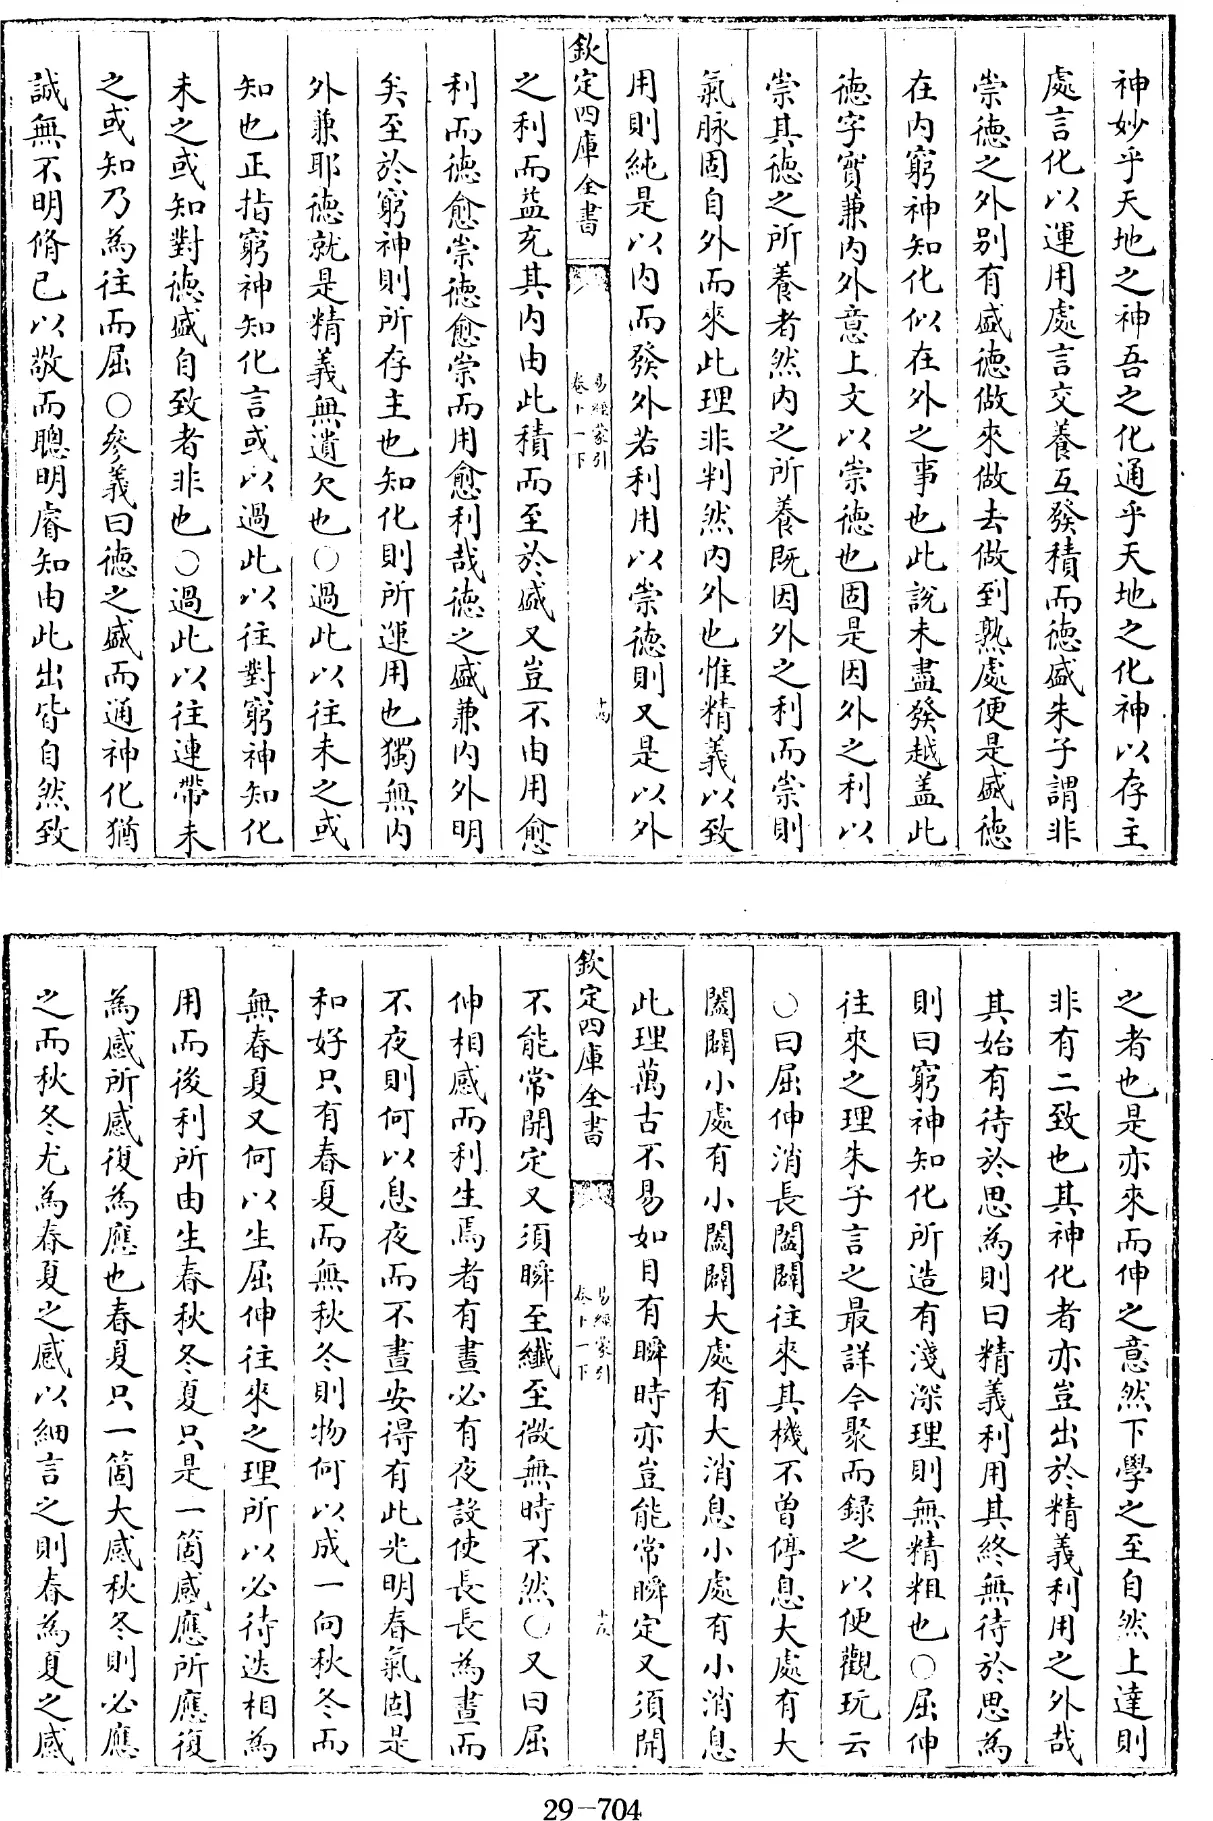 神妙乎天地之神吾之化通乎天地之化神以存主
處言化以運用處言交養互發積而德盛朱子謂非
崇德之外别有盛德做來做去做到熟處便是盛德
在内窮神知化似在外之事也此説未盡發越盖此
德字實兼内外意上文以崇德也固是因外之利以
崇其德之所養者然内之所養既因外之利而崇則
氣脉固自外而來此理非判然内外也惟精義以致
用則純是以内而發外若利用以崇德則又是以外
欽定四庫全書
易經蒙引
卷十一下
十四
之利而益充其内由此積而至於盛又豈不由用愈
利而德愈崇德愈崇而用愈利哉德之盛兼内外明
矣至於窮神則所存主也知化則所運用也獨無内
外兼耶德就是精義無遺欠也○過此以往未之或
知也正指窮神知化言或以過此以往對窮神知化
未之或知對德盛自致者非也○過此以往連帶未
之或知乃為往而屈○參義曰德之盛而通神化猶
誠無不明脩己以敬而聰明睿知由此出皆自然致
之者也是亦來而伸之意然下學之至自然上達則
非有二致也其神化者亦豈出於精義利用之外哉
其始有待於思為則曰精義利用其終無待於思為
則曰窮神知化所造有淺深理則無精粗也○屈伸
往來之理朱子言之最詳今聚而録之以便觀玩云
○曰屈伸消長闔闢往來其機不曾停息大處有大
闔闢小處有小闔闢大處有大消息小處有小消息
此理萬古不易如目有瞬時亦豈能常瞬定又須開
欽定四庫全書
易經蒙引
卷十一下
不能常開定又須瞬至纖至微無時不然○又曰屈
伸相感而利生焉者有晝必有夜設使長長為晝而
不夜則何以息夜而不晝安得有此光明春氣固是
和好只有春夏而無秋冬則物何以成一向秋冬而
無春夏又何以生屈伸往來之理所以必待迭相為
用而後利所由生春秋冬夏只是一箇感應所應復
為感所感復為應也春夏只一箇大感秋冬則必應
之而秋冬尤為春夏之感以細言之則春為夏之感
29-704